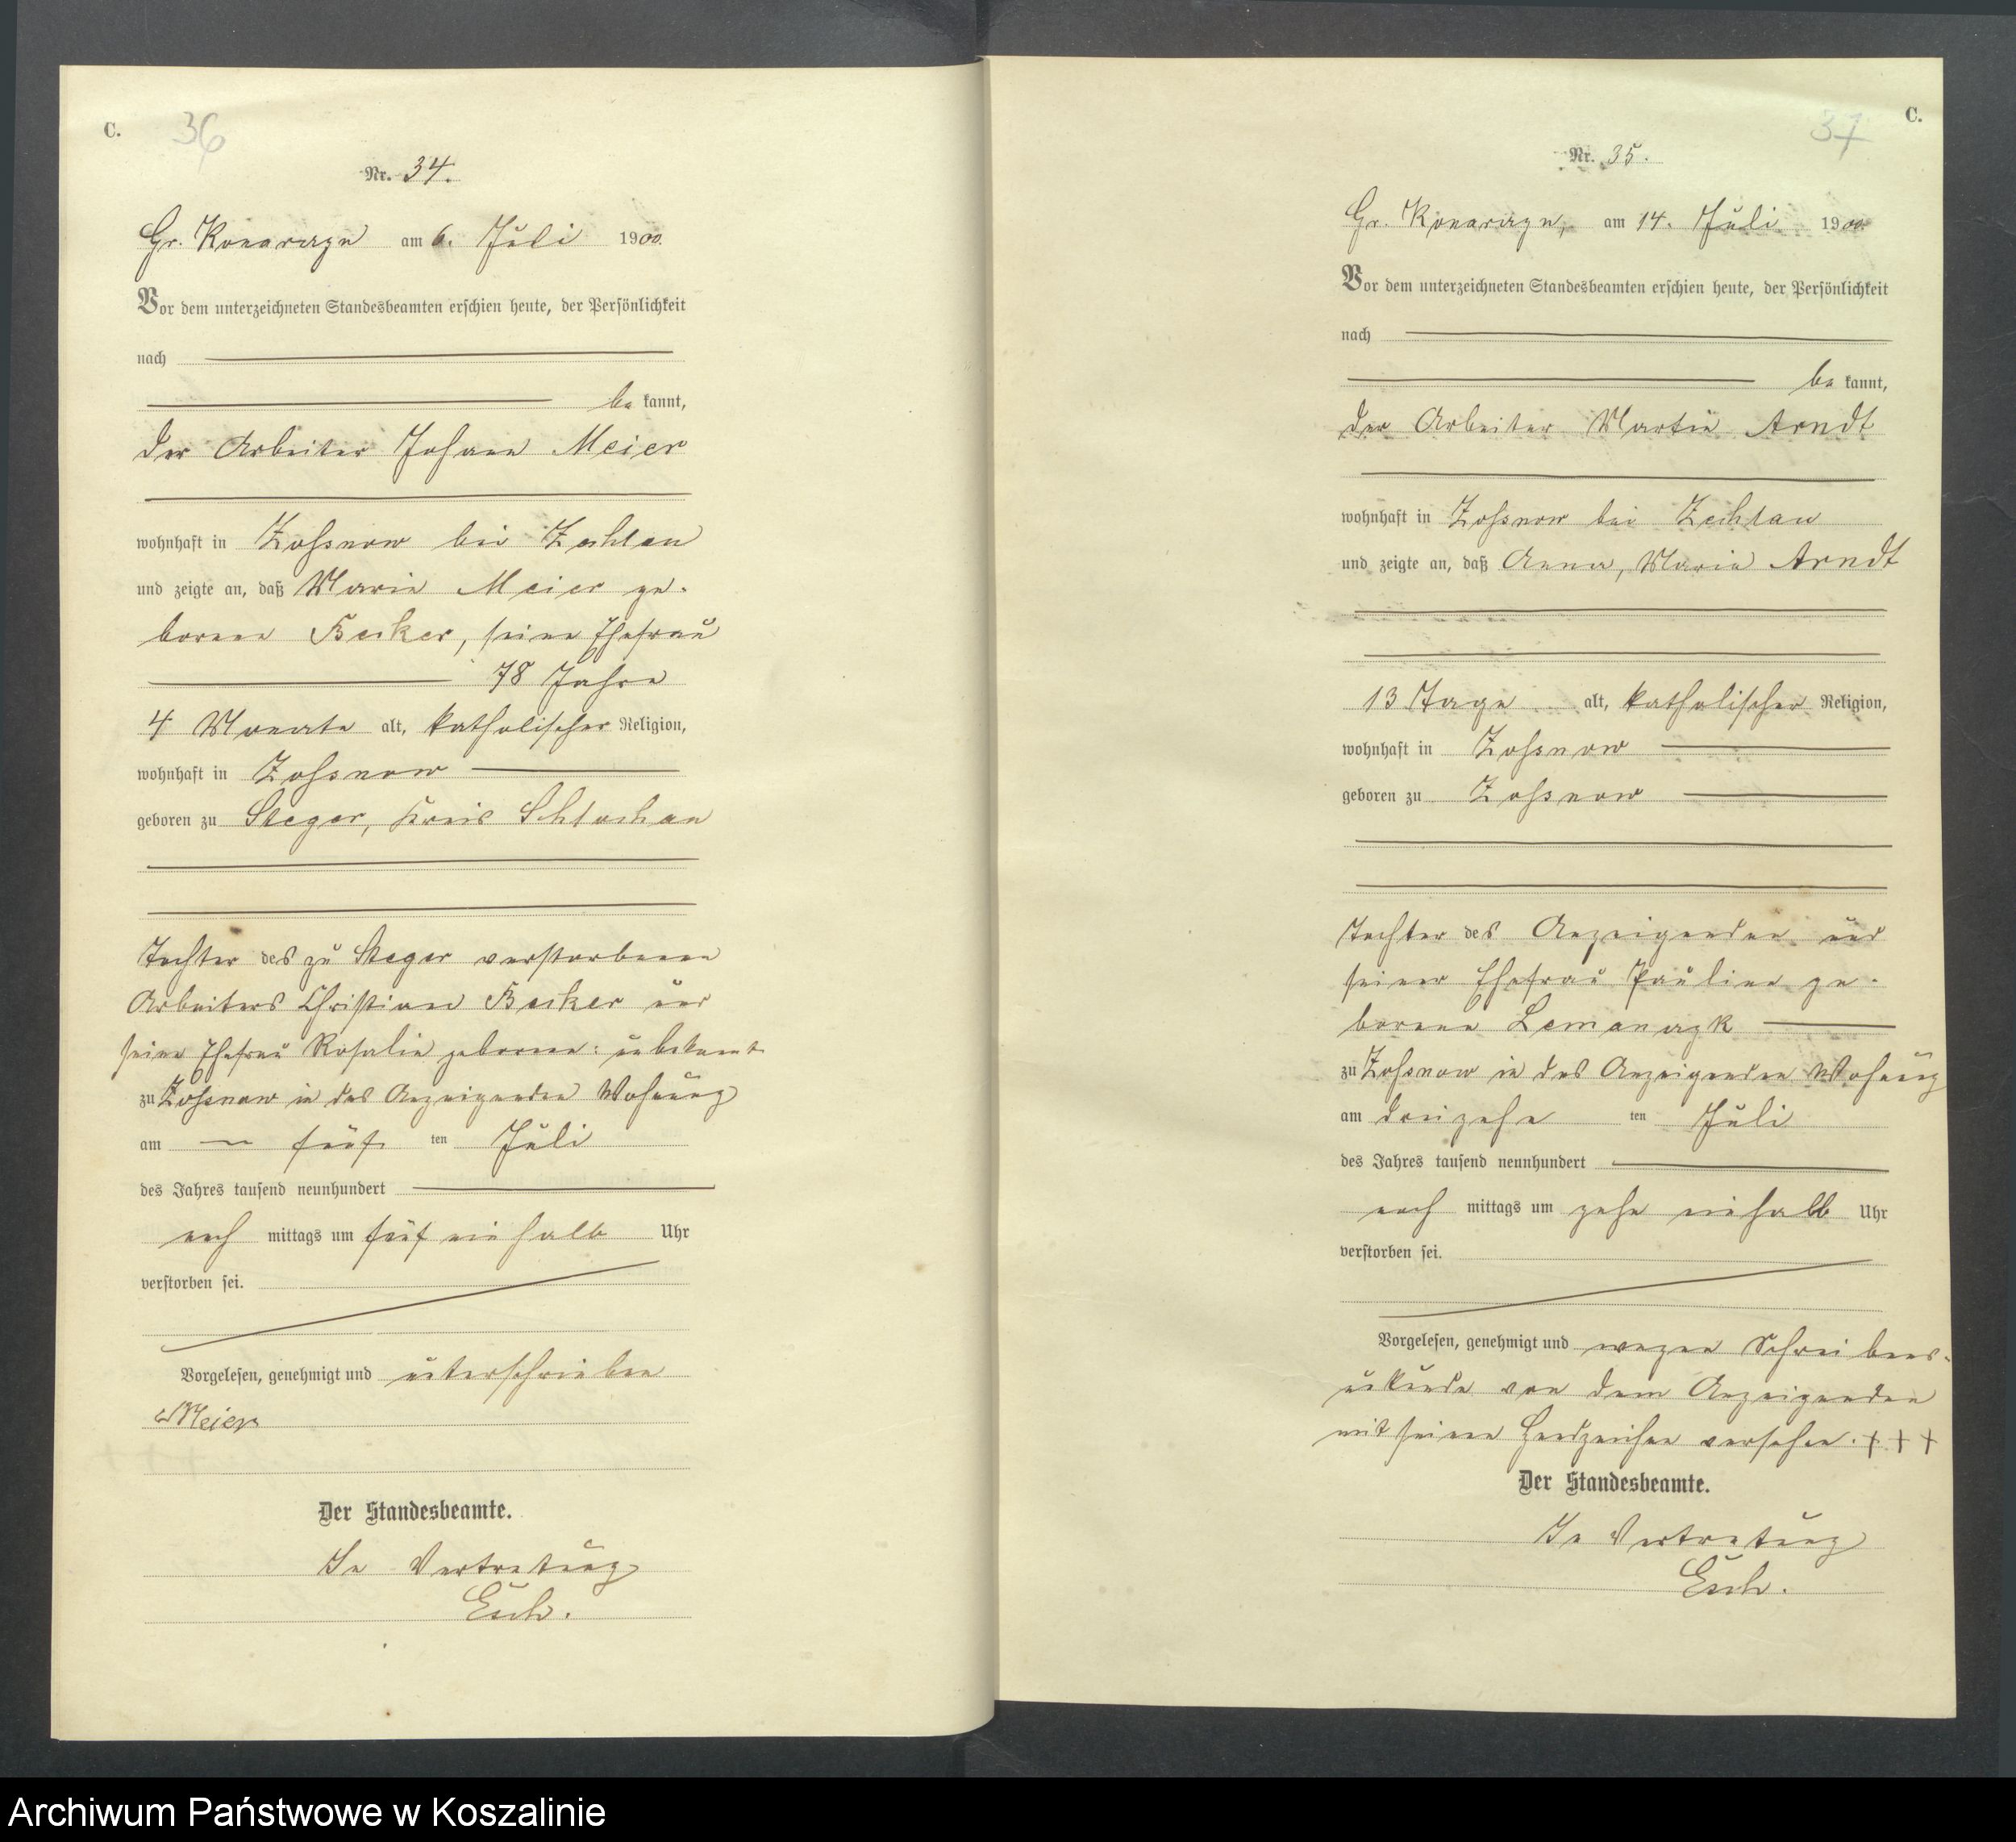 C.
36
Nr. 34.
Gr. Konarczyn am 6. Juli 1900.
Vor dem unterzeichneten Standesbeamten erschien heute, der Persönlichkeit
nach
be kannt,
der Arbeiter Johann Meier
wohnhaft in Zossnow bei Zechlau
und zeigte an, daß Marie Meier ge-
borene Becker, seine Ehefrau
78 Jahre
4 Monate alt, katholischer Religion,
wohnhaft in Zossnow
geboren zu Steger, Kreis Schlochau
Tochter des zu Steger verstorbenen
Arbeiters Christian Becker und
seine Ehefrau Rosalie geborene: unbekannt
zu Zossnow in des Anzeigenden Wohnung
am fünf ten Juli
des Jahres tausend neunhundert
nach mittags um fünf ein halb Uhr
verstorben sei.
Vorgelesen, genehmigt und unterschrieben
Meier
Der Standesbeamte.
In Vertretung
C.
37
Nr. 35.
Gr. Konarczyn, am 14. Juli 1900.
Vor dem unterzeichneten Standesbeamten erschien heute, der Persönlichkeit
nach
be kannt,
der Arbeiter Martin Arndt
wohnhaft in Zossnow bei Zechlau
und zeigte an, daß Anna, Maria Arndt
13 Tage alt, katholischer Religion,
wohnhaft in Zossnow
geboren zu Zossnow
Tochter des Anzeigenden und
seiner Ehefrau Pauline ge-
borene Lemanczyk
zu Zossnow in des Anzeigenden Wohnung
am dreizehn ten Juli
des Jahres tausend neunhundert
nach mittags um zehn ein halb Uhr
verstorben sei.
Vorgelesen, genehmigt und wegen Schreibens-
unkunde von dem Anzeigenden
mit seinen Handzeichen versehen. + + +
Der Standesbeamte.
In Vertretung
Archiwum Państwowe w Koszalinie